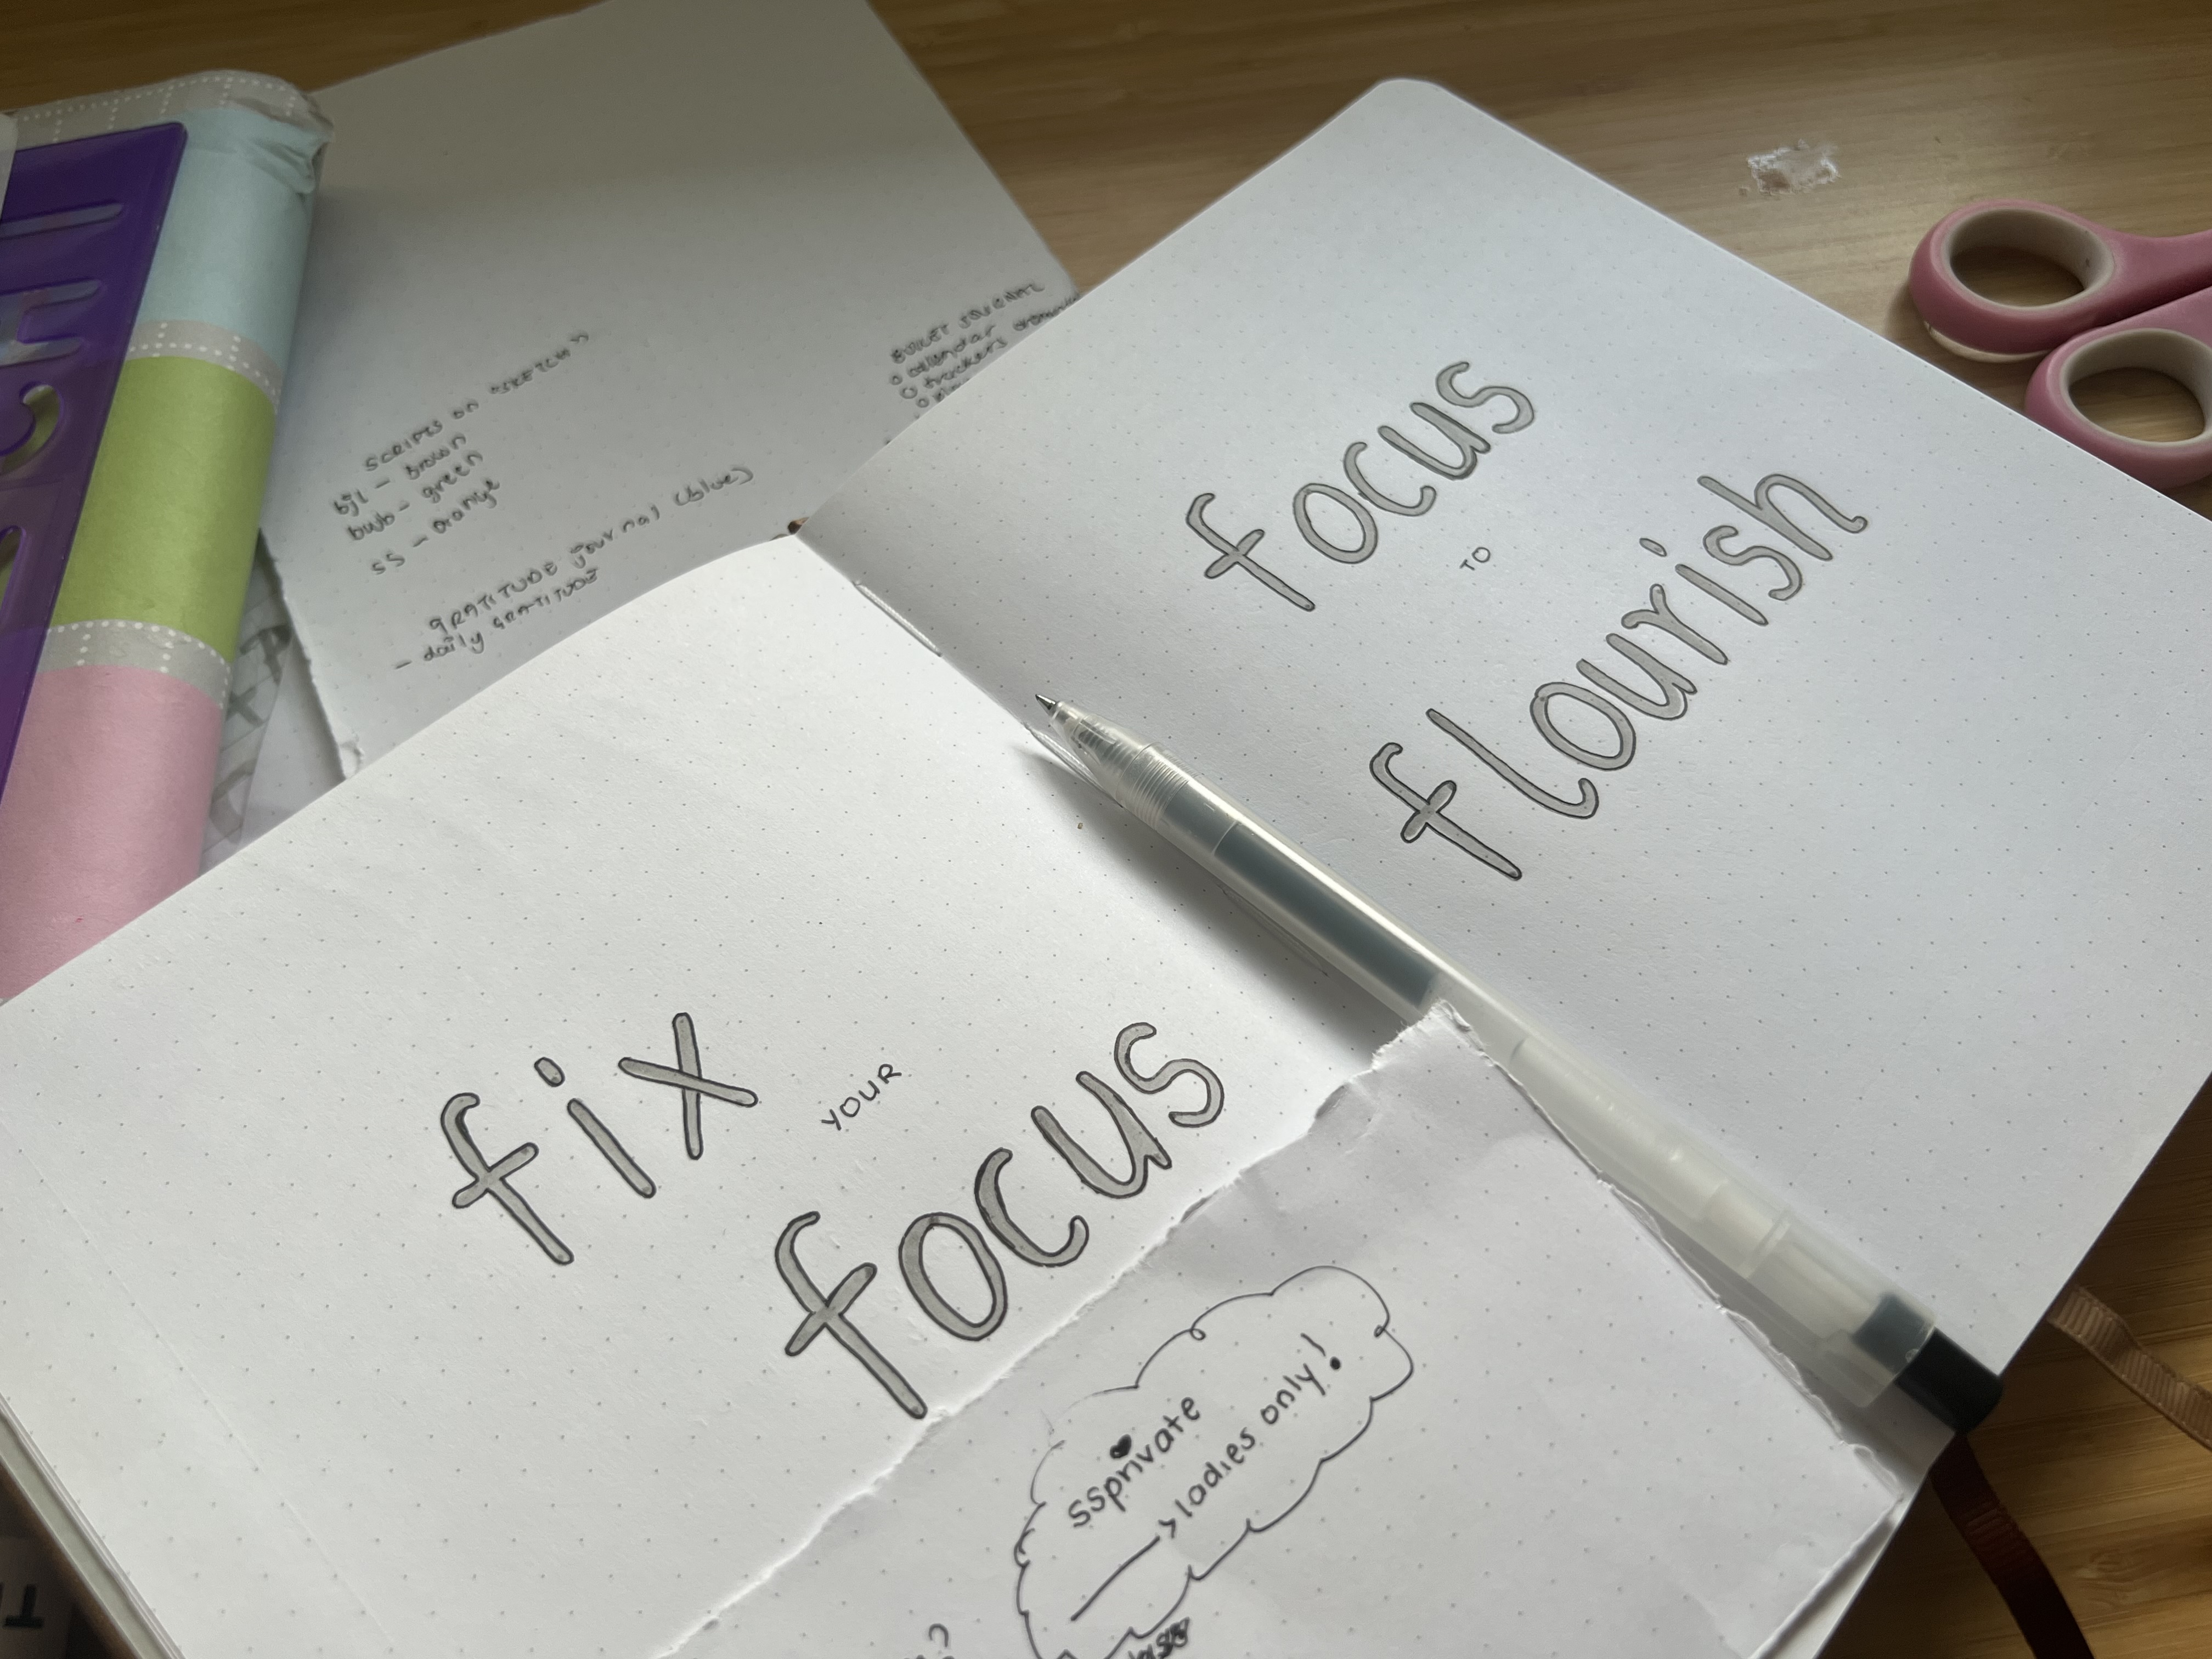 SCRIPTS on "SKETCH"
bjl - brown
bwb - green
SS - orange
GRATITUDE journal (blue)
- daily GRATITUDE
BULLET JOURNAL
o calendar
o trackers
focus
TO
flourish
fix YOUR
focus
ssprivate
ladies only!